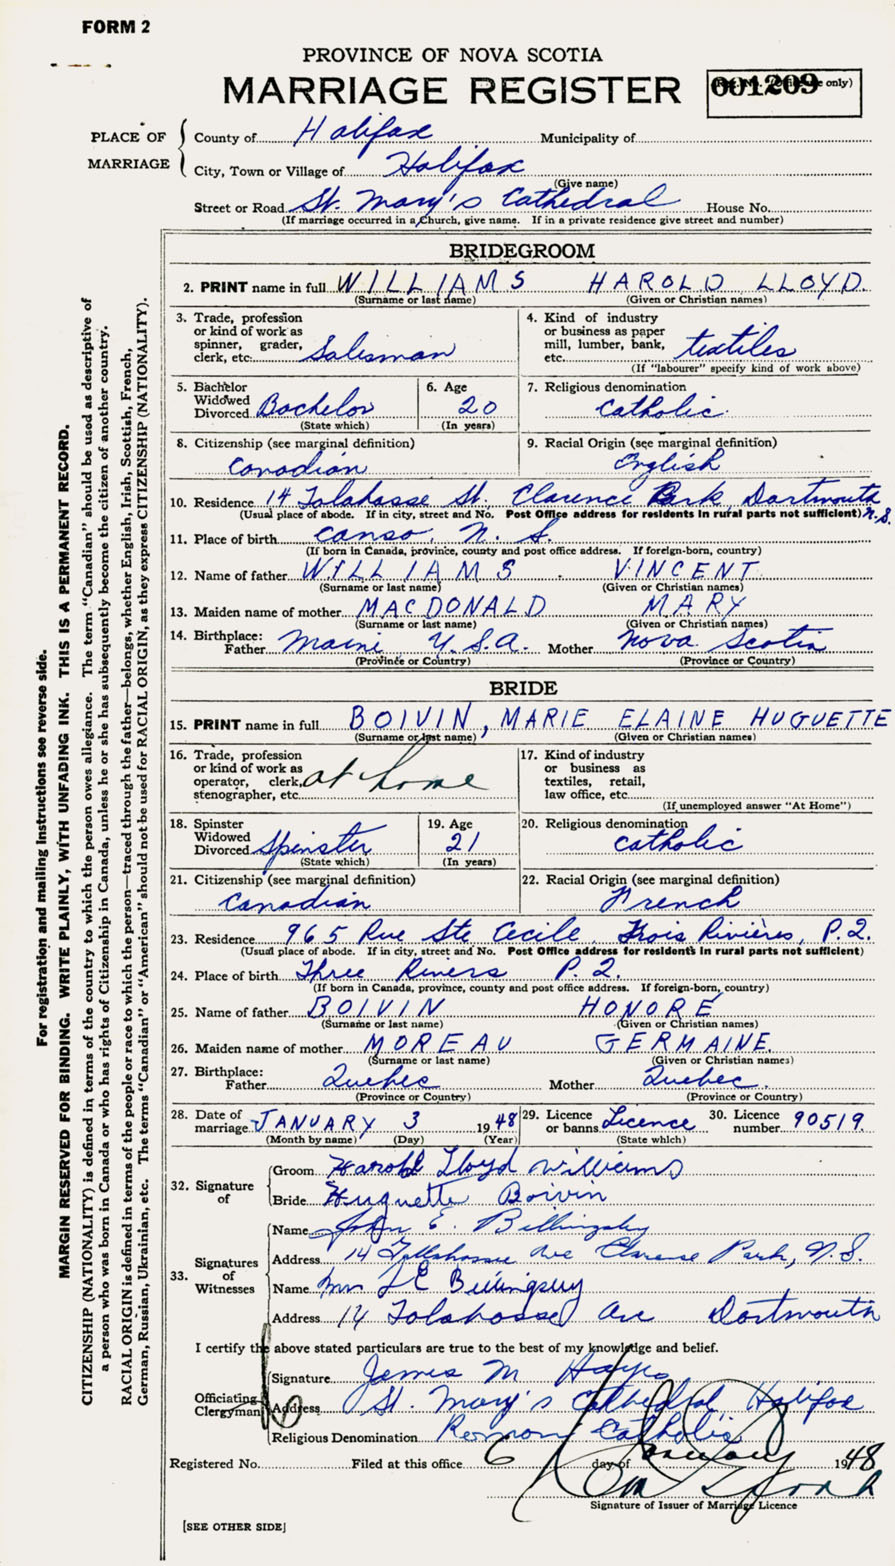 FORM 2
PROVINCE OF NOVA SCOTIA
MARRIAGE REGISTER
001209
only)
PLACE OF MARRIAGE
County of Halifax Municipality of
City, Town or Village of Halifax
(Give name)
Street or Road St. Mary's Cathedral House No.
(If marriage occurred in a Church, give name. If in a private residence give street and number)
BRIDEGROOM
2. PRINT name in full WILLIAMS HAROLD LLOYD.
(Surname or last name) (Given or Christian names)
3. Trade, profession or kind of work as spinner, grader, clerk, etc. Salesman
4. Kind of industry or business as paper mill, lumber, bank, etc. textiles
(If "labourer" specify kind of work above)
5. Bachelor Widowed Divorced Bachelor
(State which)
6. Age 20
(In years)
7. Religious denomination Catholic.
8. Citizenship (see marginal definition) Canadian
9. Racial Origin (see marginal definition) English
10. Residence 14 Talahasse St. Clarence Park, Dartmouth N.S.
(Usual place of abode. If in city, street and No. Post Office address for residents in rural parts not sufficient)
11. Place of birth Canso, N. S.
(If born in Canada, province, county and post office address. If foreign-born, country)
12. Name of father WILLIAMS VINCENT
(Surname or last name) (Given or Christian names)
13. Maiden name of mother MACDONALD MARY
(Surname or last name) (Given or Christian names)
14. Birthplace:
Father Maine U.S.A. Mother Nova Scotia
(Province or Country) (Province or Country)
BRIDE
15. PRINT name in full BOIVIN, MARIE ELAINE HUGUETTE
(Surname or last name) (Given or Christian names)
16. Trade, profession or kind of work as operator, clerk, stenographer, etc. at home
17. Kind of industry or business as textiles, retail, law office, etc.
(If unemployed answer "At Home")
18. Spinster Widowed Divorced Spinster
(State which)
19. Age 21
(In years)
20. Religious denomination Catholic
21. Citizenship (see marginal definition) Canadian
22. Racial Origin (see marginal definition) French
23. Residence 965 Rue Ste Cecile, Trois Rivières, P.Q.
(Usual place of abode. If in city, street and No. Post Office address for residents in rural parts not sufficient)
24. Place of birth Three Rivers P.Q.
(If born in Canada, province, county and post office address. If foreign-born, country)
25. Name of father BOIVIN HONORÉ
(Surname or last name) (Given or Christian names)
26. Maiden name of mother MOREAU GERMAINE.
(Surname or last name) (Given or Christian names)
27. Birthplace:
Father Quebec Mother Quebec.
(Province or Country) (Province or Country)
28. Date of marriage JANUARY 3 1948
(Month by name) (Day) (Year)
29. Licence or banns Licence
(State which)
30. Licence number 90519
32. Signature of
Groom Harold Lloyd Williams
Bride Huguette Boivin
33. Signatures of Witnesses
Name John E. Billingsley
Address 14 Tallahassee Ave Clarence Park, N.S.
Name Mrs J E Billingsley
Address 14 Talahassee Ave Dartmouth
I certify the above stated particulars are true to the best of my knowledge and belief.
Officiating Clergyman
Signature James M Hayes
Address St. Mary's Cathedral Halifax
Religious Denomination Roman Catholic
Registered No. Filed at this office 6 day of January 1948
Signature of Issuer of Marriage Licence
[SEE OTHER SIDE]
For registration and mailing instructions see reverse side.
MARGIN RESERVED FOR BINDING. WRITE PLAINLY, WITH UNFADING INK. THIS IS A PERMANENT RECORD.
CITIZENSHIP (NATIONALITY) is defined in terms of the country to which the person owes allegiance. The term "Canadian" should be used as descriptive of
a person who was born in Canada or who has rights of Citizenship in Canada, unless he or she has subsequently become the citizen of another country.
RACIAL ORIGIN is defined in terms of the people or race to which the person—traced through the father—belongs, whether English, Irish, Scottish, French,
German, Russian, Ukrainian, etc. The terms "Canadian" or "American" should not be used for RACIAL ORIGIN, as they express CITIZENSHIP (NATIONALITY).